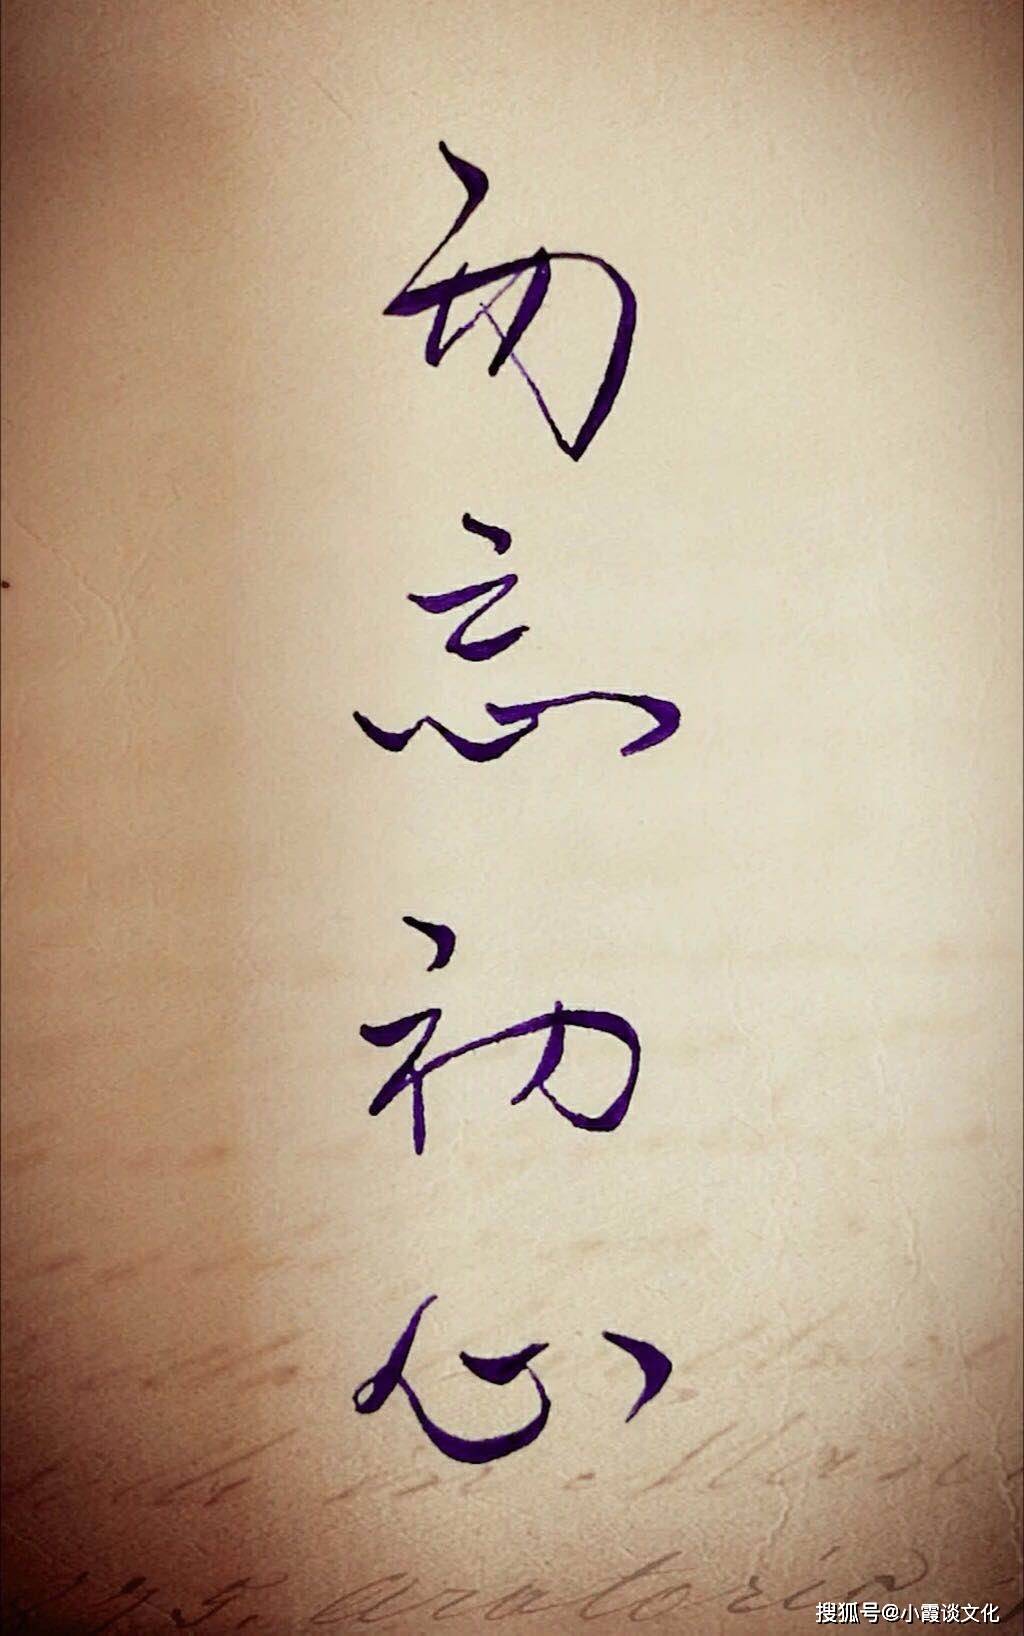 勿忘初心
搜狐号@小霞谈文化